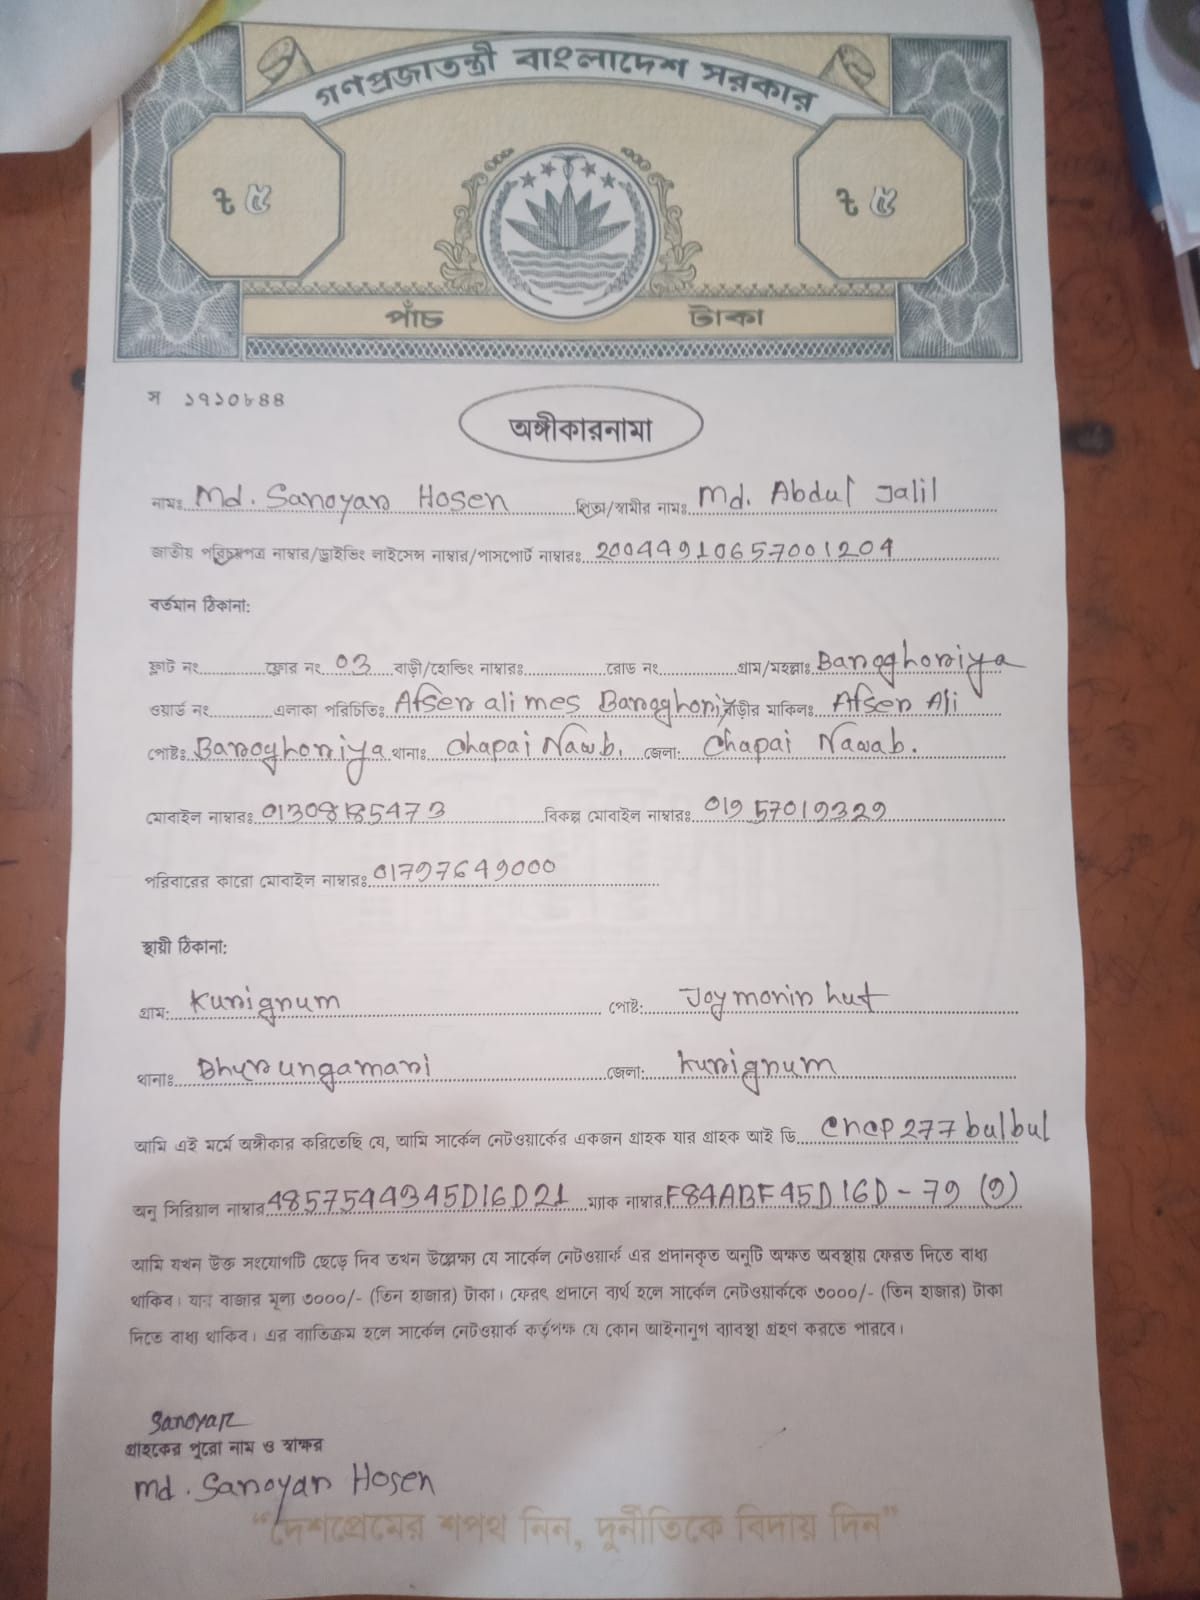 গণপ্রজাতন্ত্রী বাংলাদেশ সরকার
৳ ৫ ৳ ৫
পাঁচ টাকা
স ১৭১০৮৪৪
অঙ্গীকারনামা
নামঃ Md. Sanoyar Hosen পিতা/স্বামীর নামঃ Md. Abdul Jalil
জাতীয় পরিচয়পত্র নাম্বার/ড্রাইভিং লাইসেন্স নাম্বার/পাসপোর্ট নাম্বারঃ 20044910657001204
বর্তমান ঠিকানা:
ফ্লাট নং ফ্লোর নং 03 বাড়ী/হোল্ডিং নাম্বারঃ রোড নং গ্রাম/মহল্লাঃ Baroghoriya
ওয়ার্ড নং এলাকা পরিচিতিঃ Afser ali mes Baroghoriya বাড়ীর মালিকঃ Afser Ali
পোষ্টঃ Baroghoriya থানাঃ Chapai Nawb. জেলা: Chapai Nawab.
মোবাইল নাম্বারঃ 01308185473 বিকল্প মোবাইল নাম্বারঃ 01957019329
পরিবারের কারো মোবাইল নাম্বারঃ 01797649000
স্থায়ী ঠিকানা:
গ্রাম: Kurigrum পোষ্ট: Joymonir hut
থানাঃ Bhurungamari জেলা: Kurigrum
আমি এই মর্মে অঙ্গীকার করিতেছি যে, আমি সার্কেল নেটওয়ার্কের একজন গ্রাহক যার গ্রাহক আই ডি cncp277bulbul
অনু সিরিয়াল নাম্বার 4857544345D16D21 ম্যাক নাম্বার F84ABF45D16D-79 (9)
আমি যখন উক্ত সংযোগটি ছেড়ে দিব তখন উল্লেক্ষ্য যে সার্কেল নেটওয়ার্ক এর প্রদানকৃত অনুটি অক্ষত অবস্থায় ফেরত দিতে বাধ্য
থাকিব। যার বাজার মূল্য ৩০০০/- (তিন হাজার) টাকা। ফেরৎ প্রদানে ব্যর্থ হলে সার্কেল নেটওয়ার্ককে ৩০০০/- (তিন হাজার) টাকা
দিতে বাধ্য থাকিব। এর ব্যতিক্রম হলে সার্কেল নেটওয়ার্ক কর্তৃপক্ষ যে কোন আইনানুগ ব্যাবস্থা গ্রহণ করতে পারবে।
Sanoyar
গ্রাহকের পুরো নাম ও স্বাক্ষর
Md. Sanoyar Hosen
“দেশপ্রেমের শপথ নিন, দুর্নীতিকে বিদায় দিন”